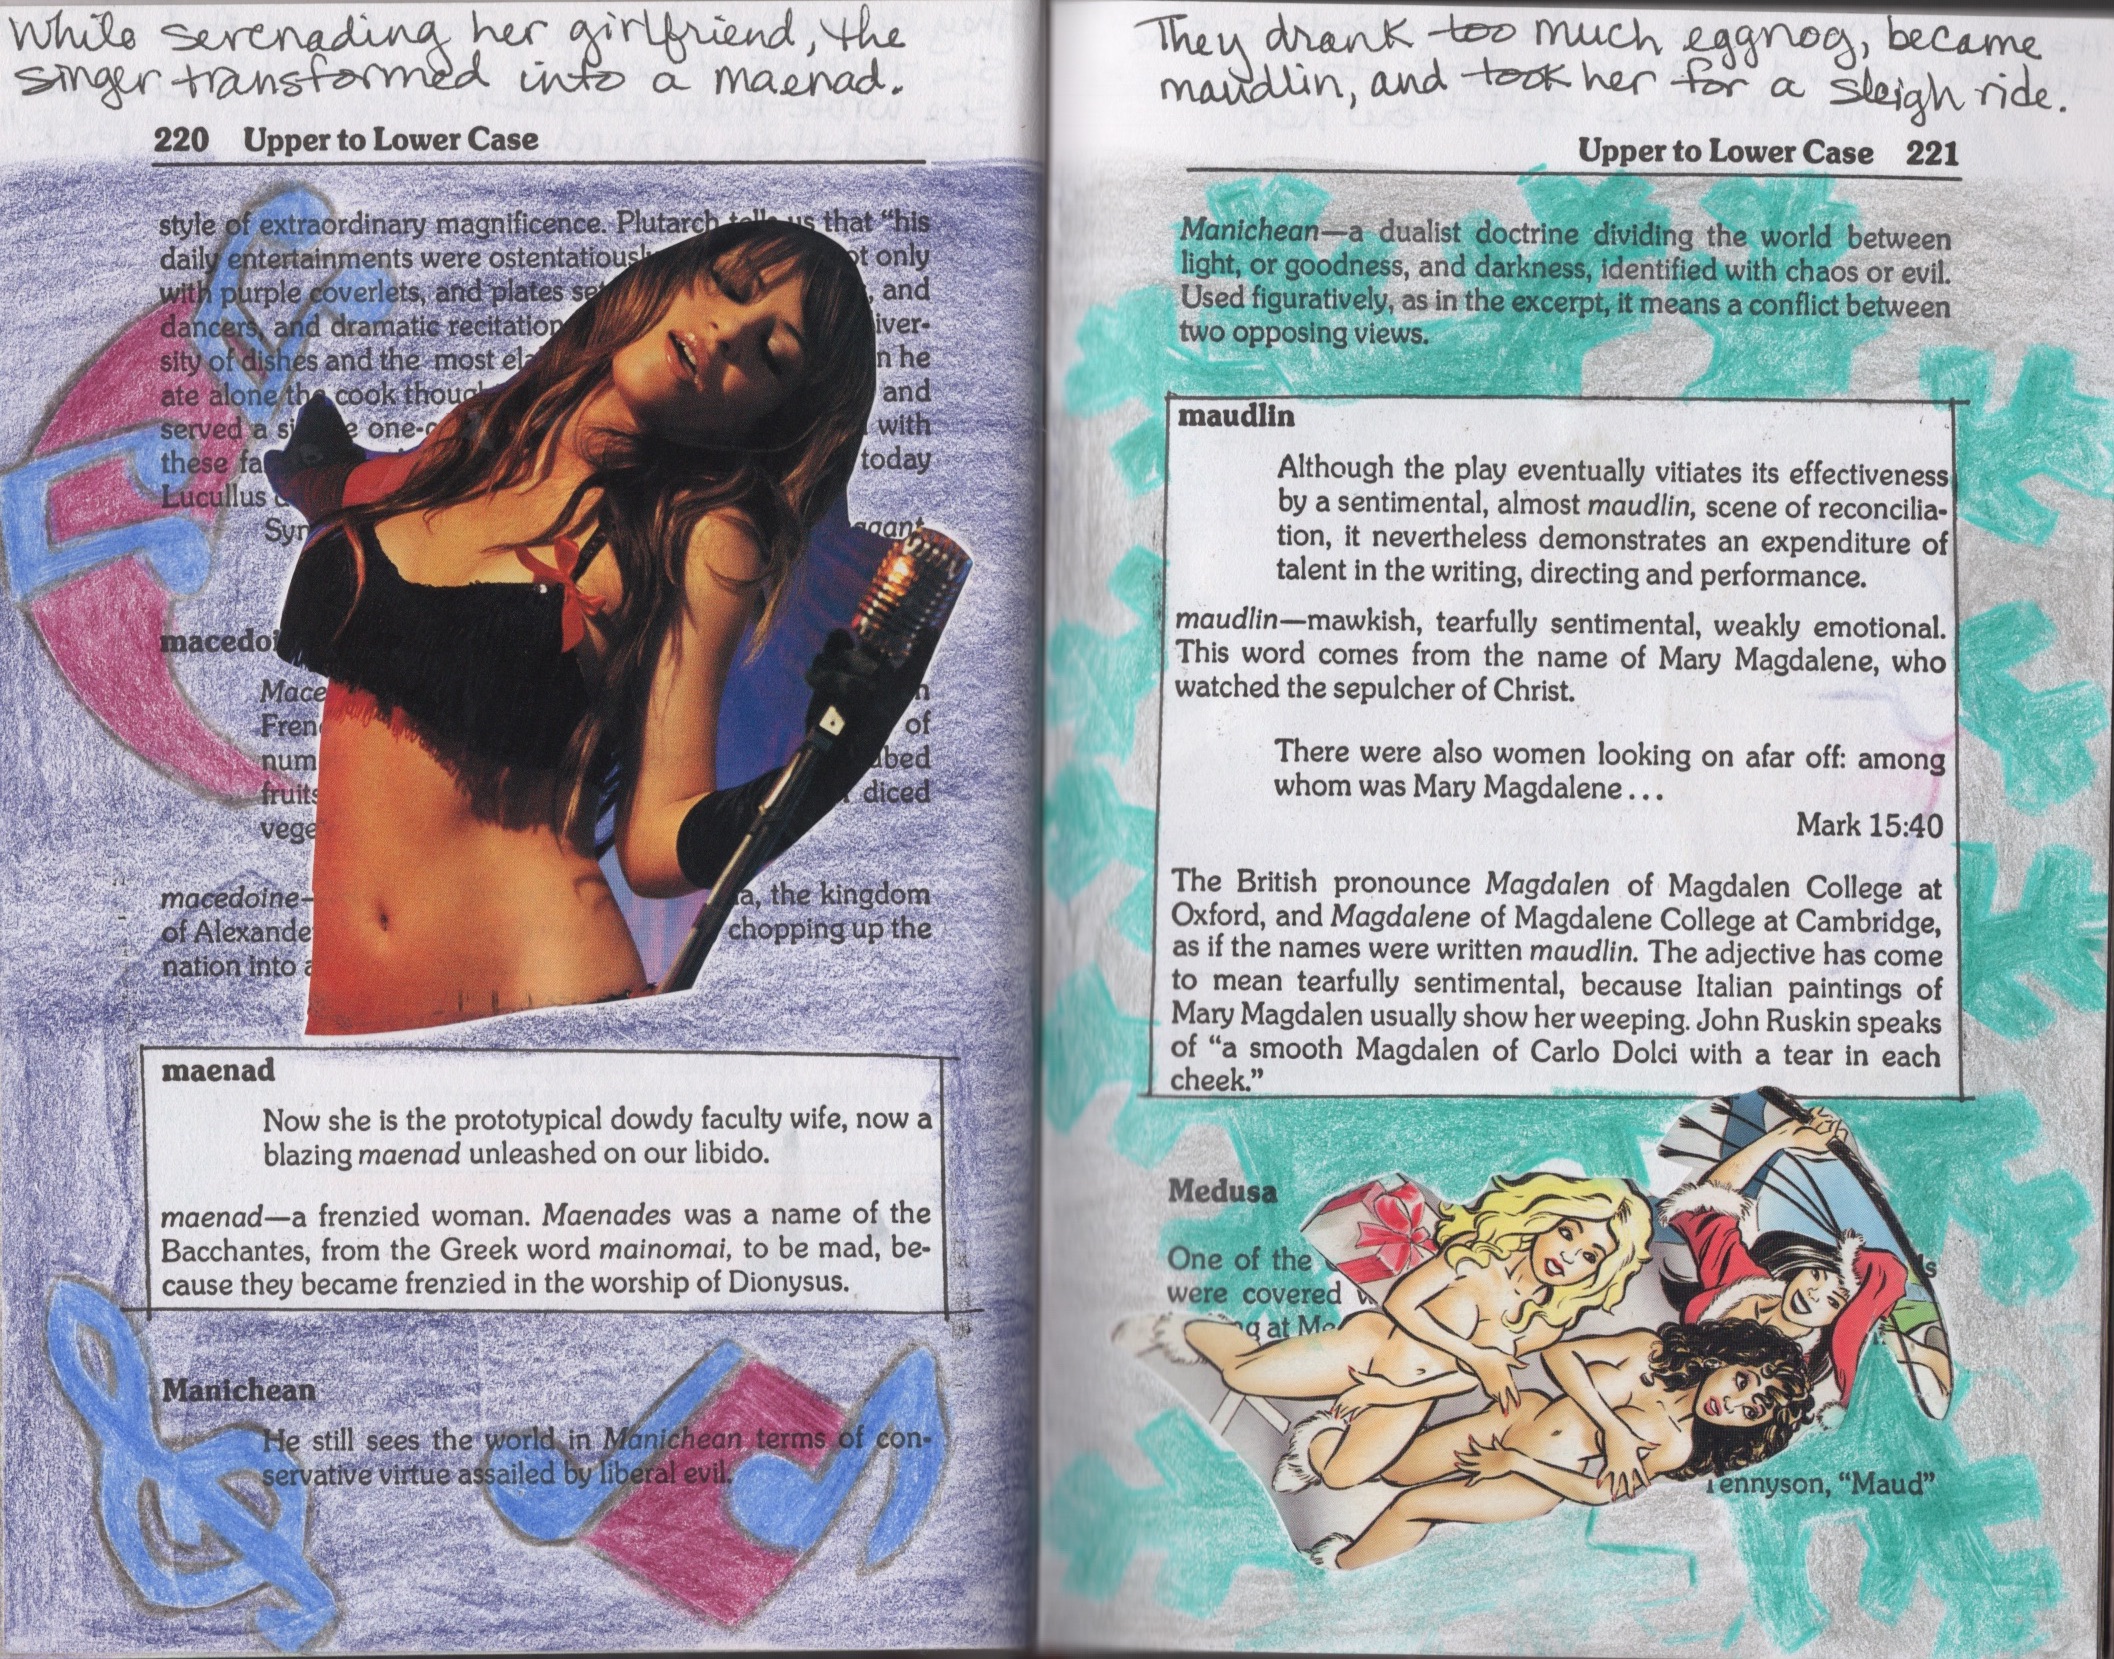 While serenading her girlfriend, the
singer transformed into a maenad.
220 Upper to Lower Case
style of extraordinary magnificence. Plutarch tells us that “his
daily entertainments were ostentatiously not only
with purple coverlets, and plates and
dancers, and dramatic recitation
sity of dishes and the most he
ate alone the cook and
served a with
these today
Lucullus
macedoi
Mace
Fren of
num
fruits diced
vege
macedoine— the kingdom
of Alexande chopping up the
nation into
maenad
Now she is the prototypical dowdy faculty wife, now a
blazing maenad unleashed on our libido.
maenad—a frenzied woman. Maenades was a name of the
Bacchantes, from the Greek word mainomai, to be mad, be-
cause they became frenzied in the worship of Dionysus.
Manichean
He still sees the world in Manichean terms of con-
servative virtue assailed by liberal evil.
They drank too much eggnog, became
maudlin, and took her for a sleigh ride.
Upper to Lower Case 221
Manichean—a dualist doctrine dividing the world between
light, or goodness, and darkness, identified with chaos or evil.
Used figuratively, as in the excerpt, it means a conflict between
two opposing views.
maudlin
Although the play eventually vitiates its effectiveness
by a sentimental, almost maudlin, scene of reconcilia-
tion, it nevertheless demonstrates an expenditure of
talent in the writing, directing and performance.
maudlin—mawkish, tearfully sentimental, weakly emotional.
This word comes from the name of Mary Magdalene, who
watched the sepulcher of Christ.
There were also women looking on afar off: among
whom was Mary Magdalene . . .
Mark 15:40
The British pronounce Magdalen of Magdalen College at
Oxford, and Magdalene of Magdalene College at Cambridge,
as if the names were written maudlin. The adjective has come
to mean tearfully sentimental, because Italian paintings of
Mary Magdalen usually show her weeping. John Ruskin speaks
of “a smooth Magdalen of Carlo Dolci with a tear in each
cheek.”
Medusa
One of the
were covered
at
Tennyson, “Maud”